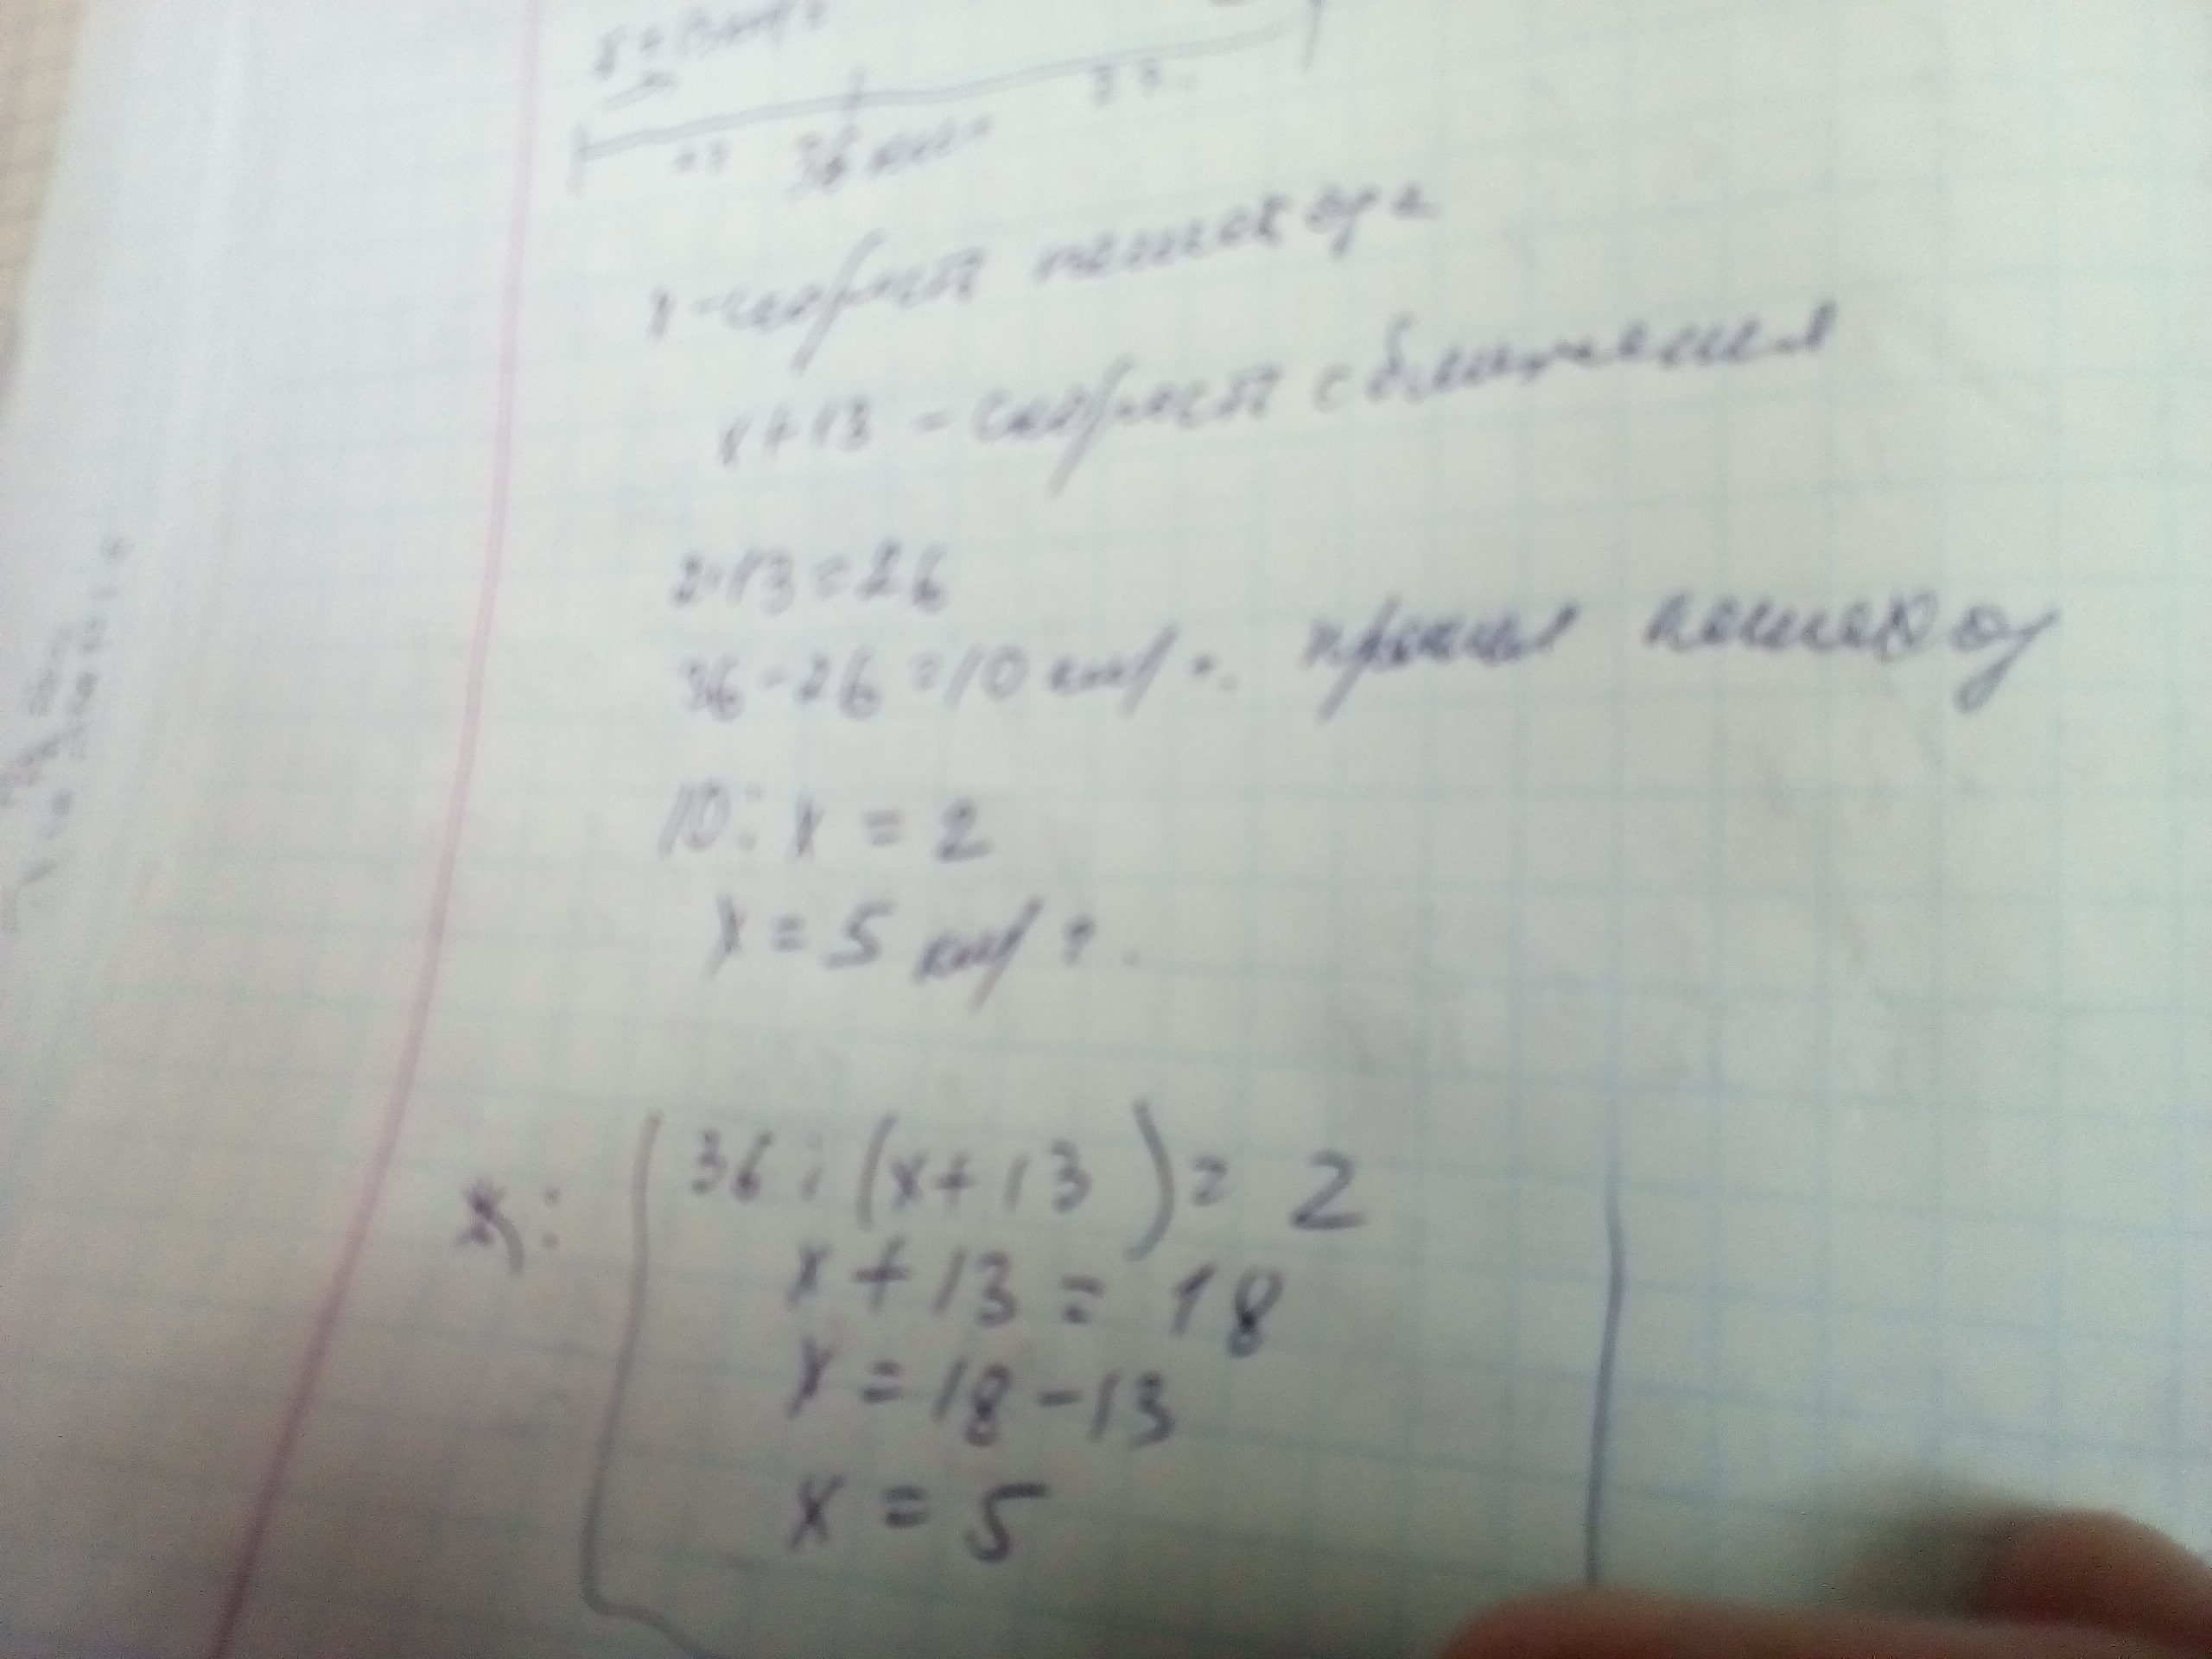 36 км
x - скорость пешехода
x + 13 - скорость сближения
2·13 = 26
36 - 26 = 10 км/ч. прошел пешеход
10 : x = 2
x = 5 км/ч.
36 : (x + 13) = 2
x + 13 = 18
x = 18 - 13
x = 5